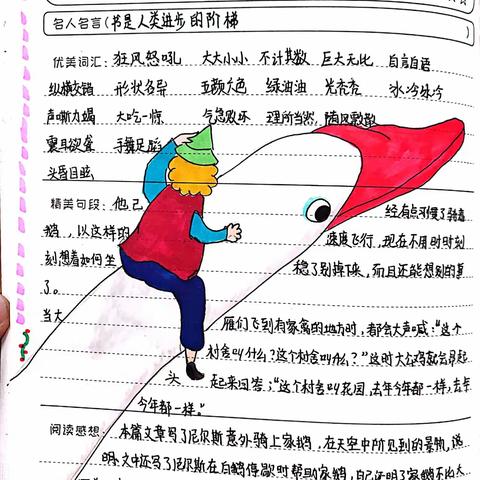 名人名言(书是人类进步的阶梯)
优美词汇：狂风怒吼 大大小小 不计其数 巨大无比 自言自语
纵横交错 形状各异 五颜六色 绿油油 光秃秃 冰冷冰冷
声嘶力竭 大吃一惊 气急败坏 理所当然 随风飘散
震耳欲聋 手舞足蹈
头昏目眩
精美句段：他已 经有点习惯了骑着
鹅，以这样的 速度飞行，现在不用时时刻
刻想着如何坐 稳了别掉下来，而且还能想别的事
了。
当大 雁们飞到有家禽的地方时，都会大声喊："这个
村舍叫什么？这个村舍叫什么？"这时大公鸡就会昂起
头 起来回答："这个村舍叫花园，去年今年都一样，去年
今年都一样。"
阅读感想：本篇文章写了尼尔斯意外骑上家鹅，在天空中所见到的景物，说
明，文中还写了尼尔斯在白鹅停歇时帮助家鹅，自己证明了家鹅不比大